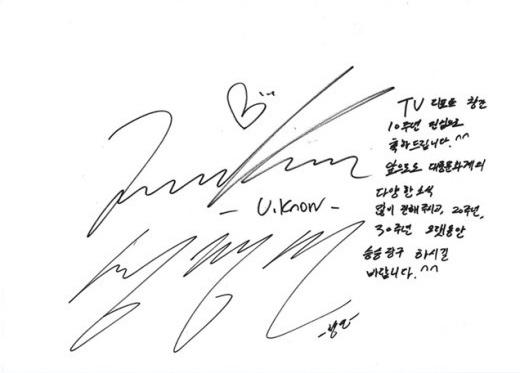 - U.Know -
TV 리포트 창간
10주년 진심으로
축하드립니다.^^
앞으로도 대중문화계의
다양한 소식
많이 전해주시고, 20주년,
30주년 오랫동안
승승장구 하시길
바랍니다.^^